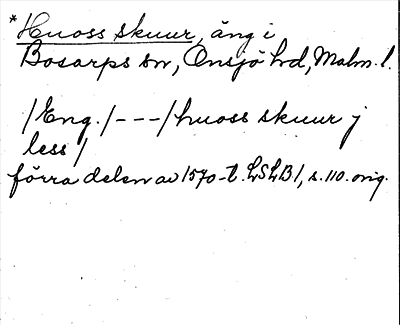 *Huoss skuur, äng i
Bosarps sn, Onsjö hd, Malm. l.
/Eng./---/huoss skuur j
less/
förra delen av 1570-t. LSLB1, s. 110. orig.